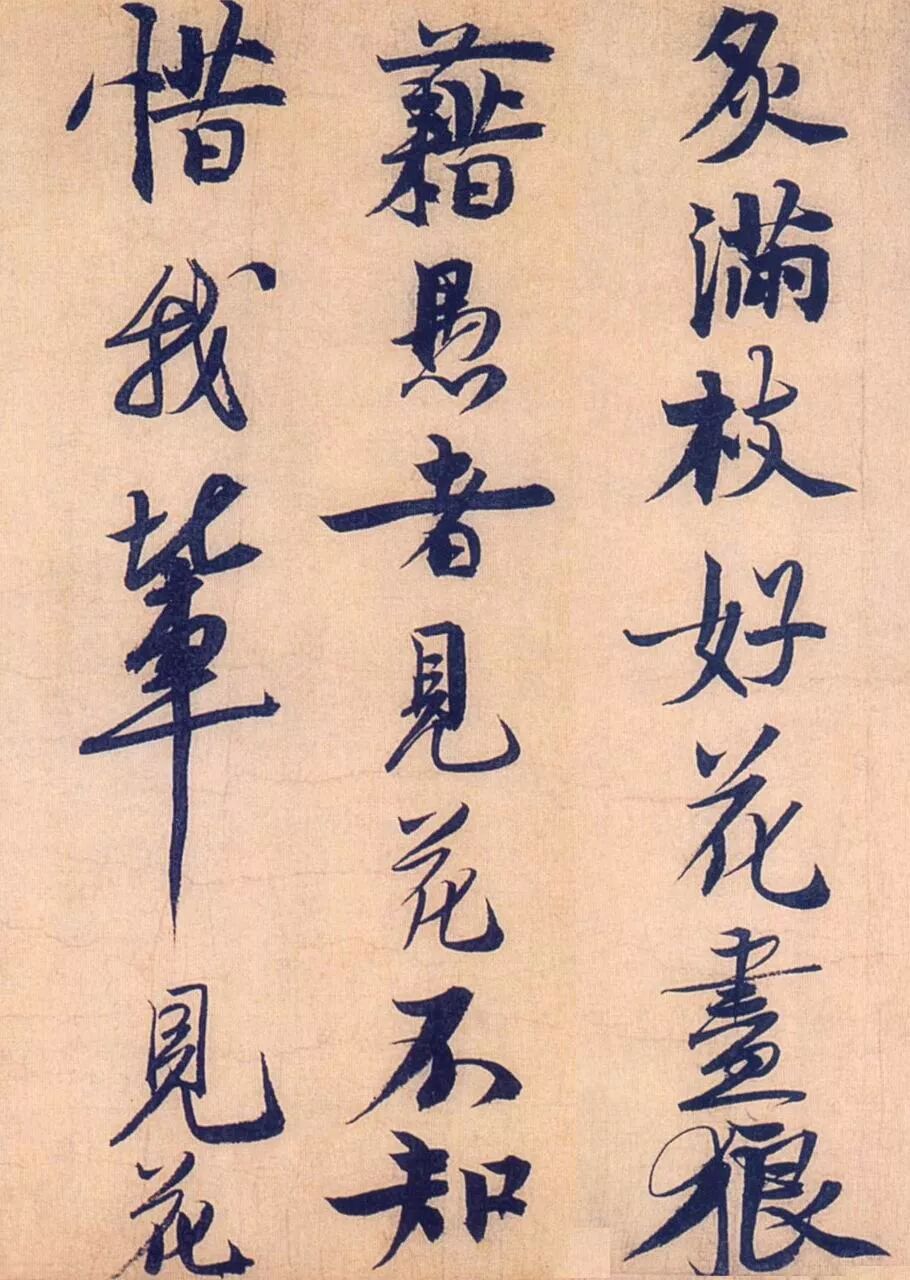 炙滿枝好花盡狼
藉愚者見花不知
惜我輩見花